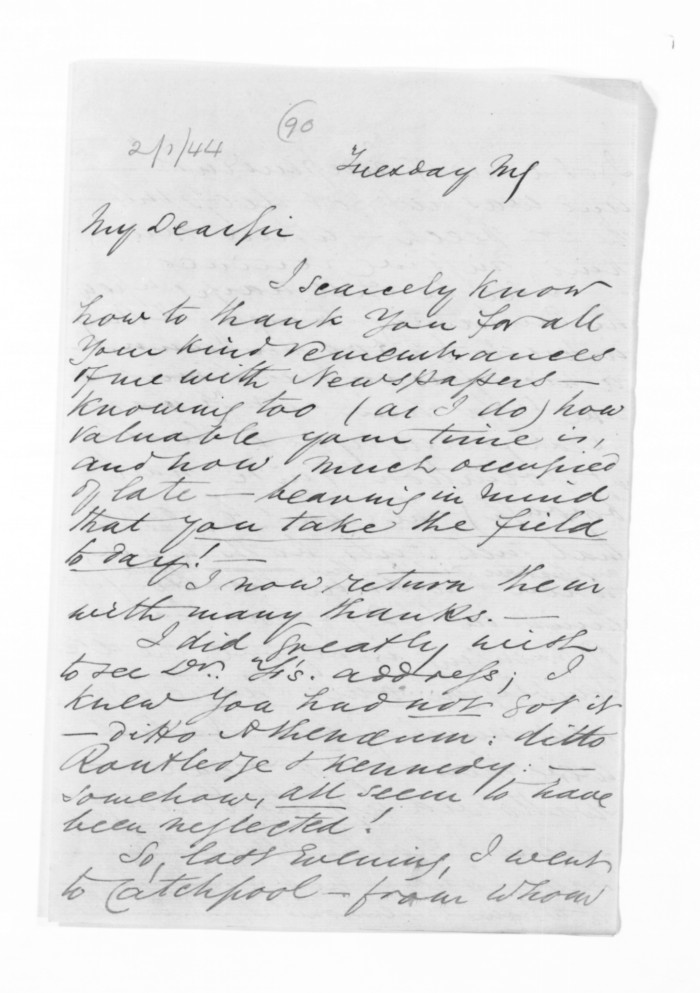 (90
2/1/44
Tuesday Mg
My Dear Sir
I scarcely know
how to thank you for all
your kind remembrances
of me with Newspapers —
knowing too (as I do) how
valuable your time is,
and how much occupied
of late — bearing in mind
that you take the field
to day! —
I now return them
with many thanks. —
I did greatly wish
to see Dr. address; I
knew you had not got it
— ditto Athenæum: ditto
Routledge & Kennedy: —
somehow, all seem to have
been neglected!
So, last Evening, I went
to Catchpool — from whom